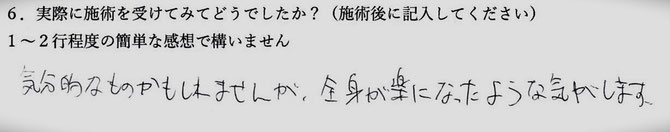 ６．実際に施術を受けてみてどうでしたか？（施術後に記入してください）
１～２行程度の簡単な感想で構いません
気分的なものかもしれませんが、全身が楽になったような気がします。